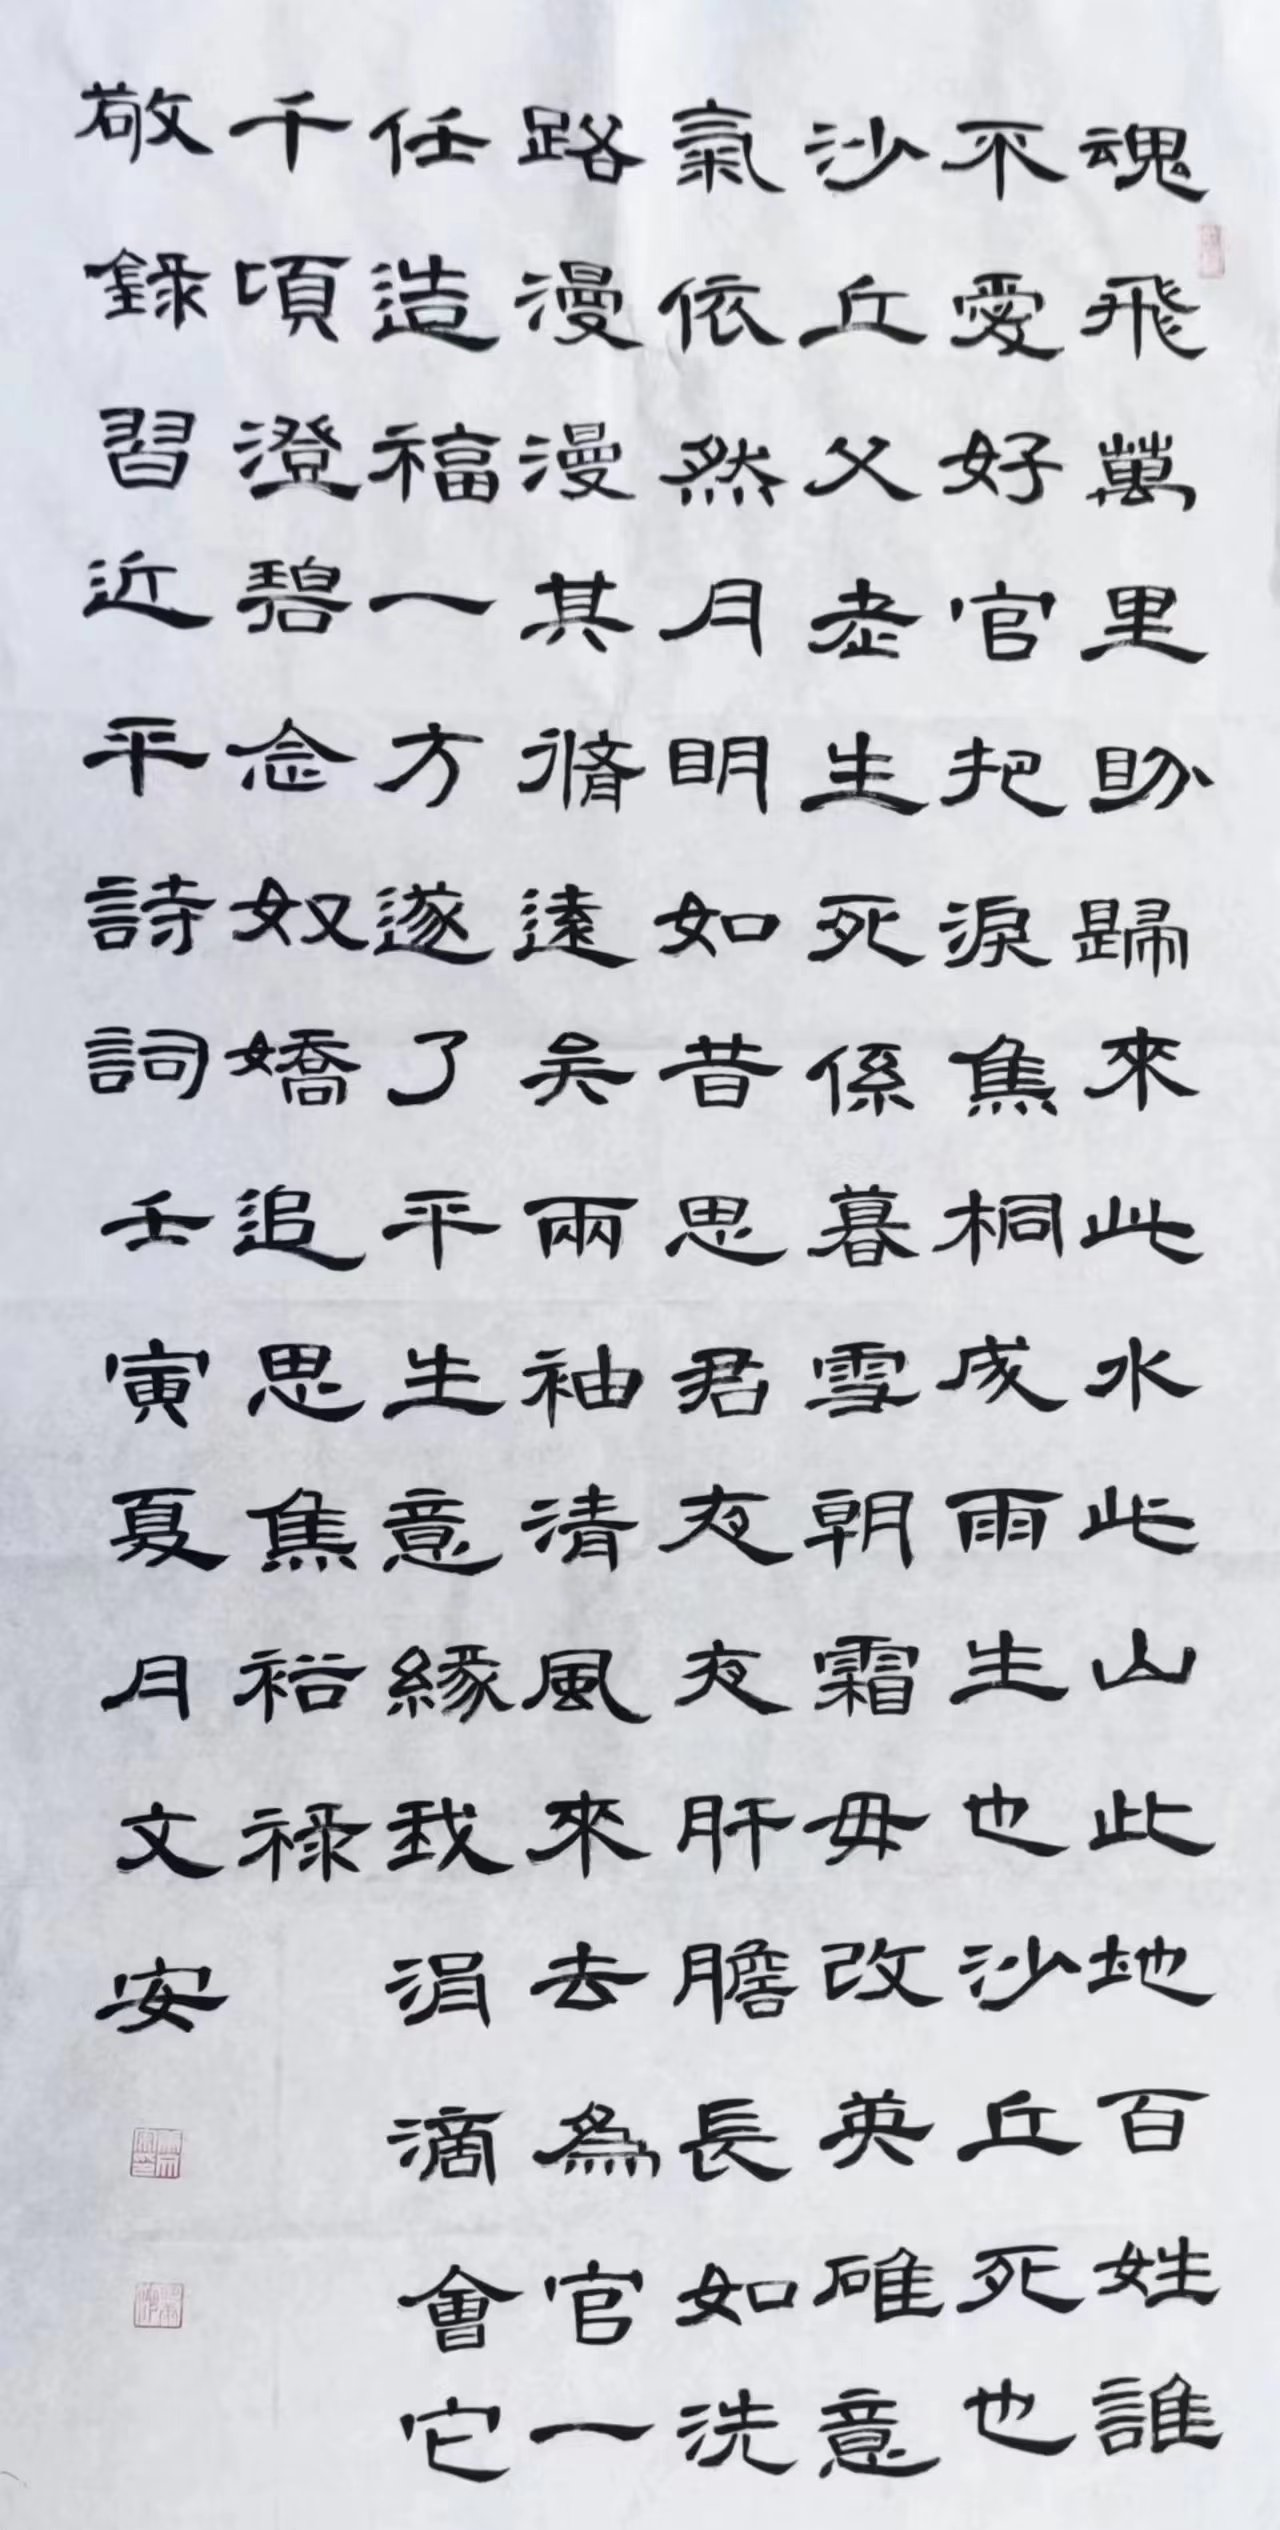 魂飛萬里盼歸來此水此山此地百姓誰
不愛好官把淚焦桐成雨生也沙丘死也
沙丘父老生死係暮雪朝霜毋改英雄意
氣依然月明如昔思君夜夜肝膽長如洗
路漫漫其脩遠矣兩袖清風來去為官一
任造福一方遂了平生意緣我涓滴會它
千頃澄碧念奴嬌追思焦裕祿
敬錄習近平詩詞壬寅夏月文安